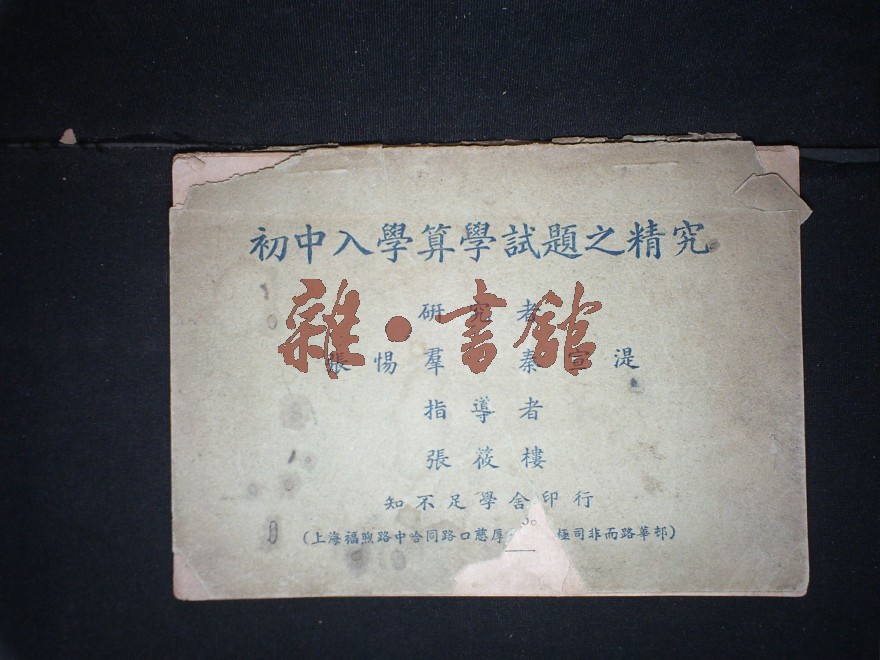 初中入學算學試題之精究
雜·書館
研究者
張惕羣 秦宣湜
指導者
張筱樓
知不足學舍印行
(上海福煦路中哈同路口慈厚 極司非而路華邨)